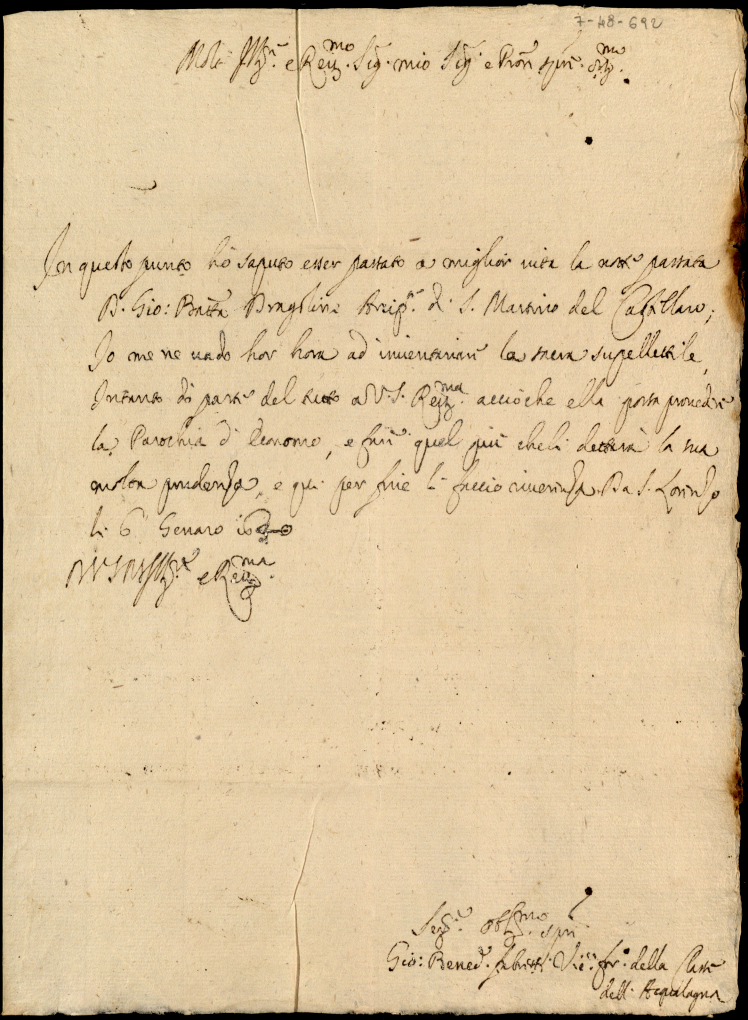 7-48-692
Molt Ill.re e Rev.mo Sig. mio Sig. e Pron
In questo punto hò saputo esser passato a miglior vita la notte passata
D. Gio: Batta Arcip.te di S. Martino del
Io me ne vado hor hora ad inventariare la sacra supellettile,
Intanto dò parte del tutto a V.S. Rev.ma acciòche ella possa provedere
la Parochia d'Economo, e fare quel più che li dettarà la sua
molta prudenza, e qui per fine li faccio riverenza. Da S. Lorenzo
li 6 Genaro
D V S M Ill.re e Rev.ma
Ser.re obl.mo
Gio: Bened. Vic. for. della Classe
dell' Acqualagna